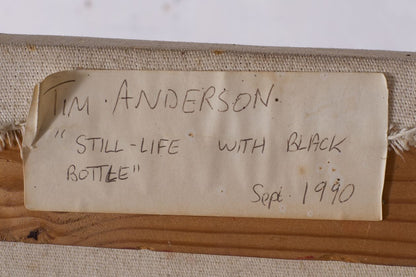 TIM · ANDERSON ·
"STILL-LIFE" WITH BLACK
BOTTLE"
Sept. 1990